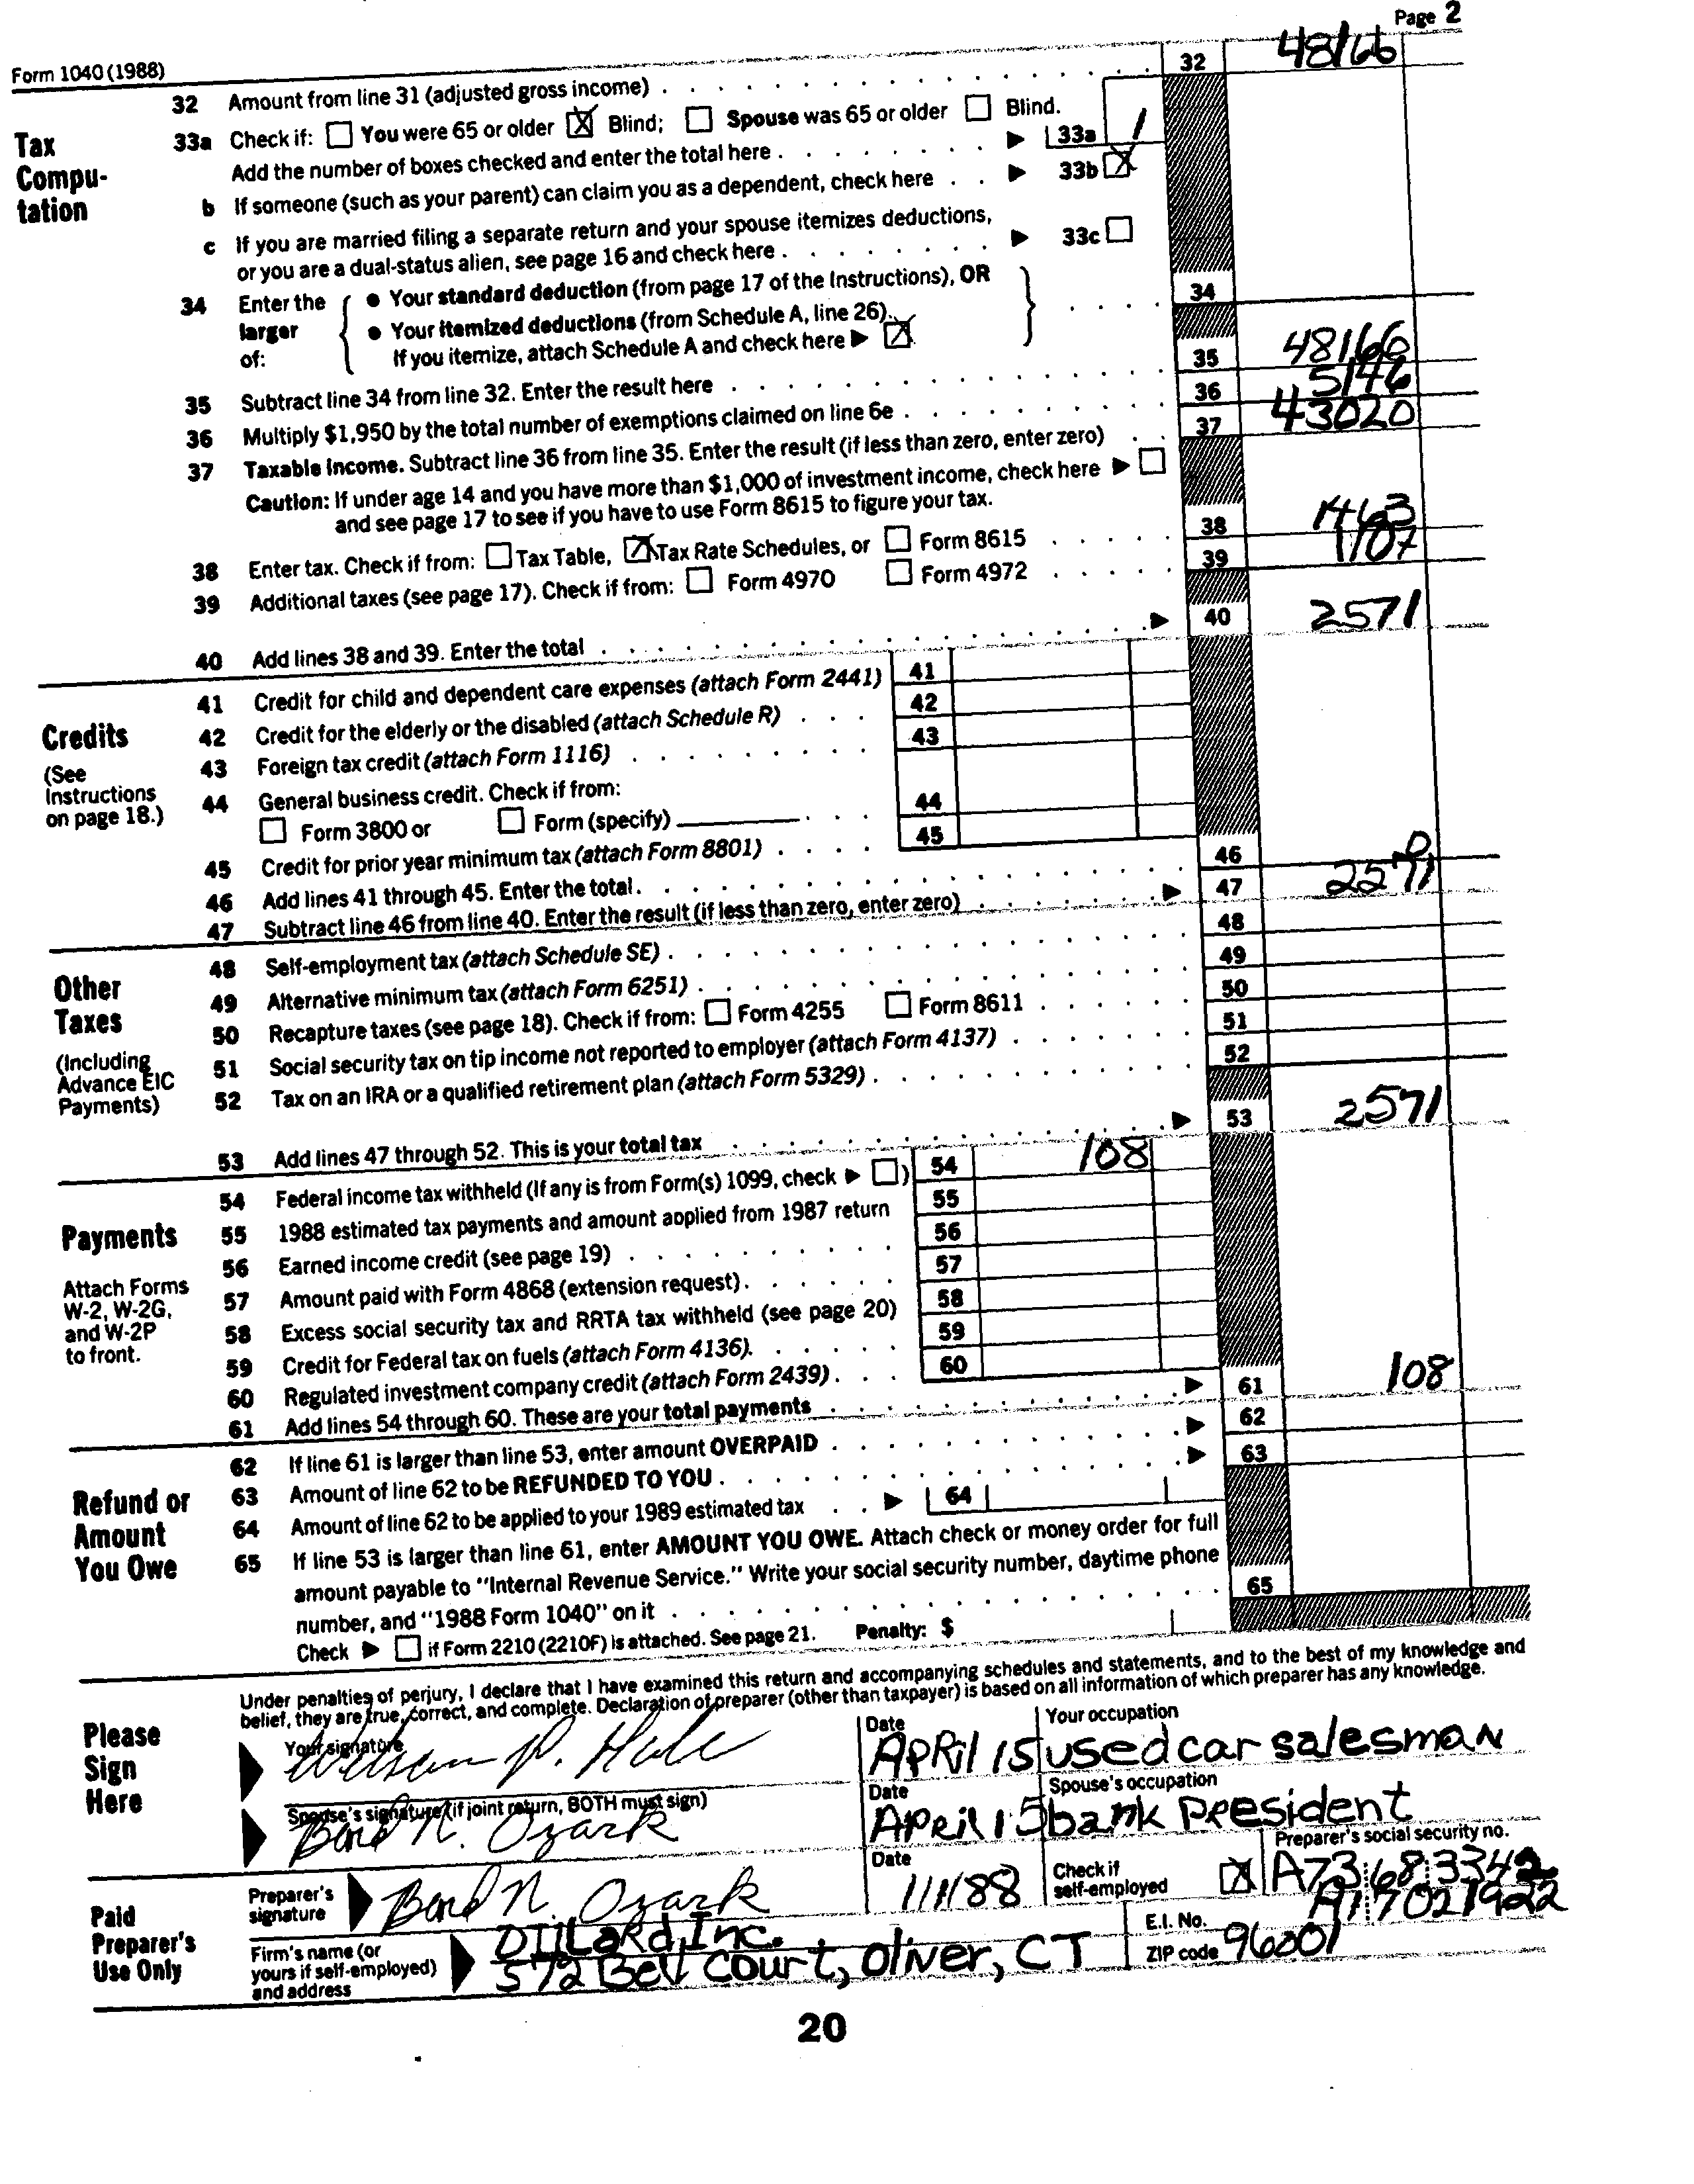 Page 2
Form 1040 (1988)
32 Amount from line 31 (adjusted gross income) 32 48166
Tax Compu- tation
33a Check if: You were 65 or older X Blind; Spouse was 65 or older Blind.
Add the number of boxes checked and enter the total here 33a 1
b If someone (such as your parent) can claim you as a dependent, check here 33b X
c If you are married filing a separate return and your spouse itemizes deductions,
or you are a dual-status alien, see page 16 and check here 33c
34 Enter the larger of: • Your standard deduction (from page 17 of the Instructions), OR 34
• Your itemized deductions (from Schedule A, line 26).
If you itemize, attach Schedule A and check here X
35 Subtract line 34 from line 32. Enter the result here 35 48166
36 Multiply $1,950 by the total number of exemptions claimed on line 6e 36 5146
37 Taxable income. Subtract line 36 from line 35. Enter the result (if less than zero, enter zero) 37 43020
Caution: If under age 14 and you have more than $1,000 of investment income, check here
and see page 17 to see if you have to use Form 8615 to figure your tax.
38 Enter tax. Check if from: Tax Table, X Tax Rate Schedules, or Form 8615 38 1463
39 Additional taxes (see page 17). Check if from: Form 4970 Form 4972 39 1107
40 Add lines 38 and 39. Enter the total 40 2571
Credits
(See Instructions on page 18.)
41 Credit for child and dependent care expenses (attach Form 2441) 41
42 Credit for the elderly or the disabled (attach Schedule R) 42
43 Foreign tax credit (attach Form 1116) 43
44 General business credit. Check if from:
Form 3800 or Form (specify) 44
45 Credit for prior year minimum tax (attach Form 8801) 45
46 Add lines 41 through 45. Enter the total 46 0
47 Subtract line 46 from line 40. Enter the result (if less than zero, enter zero) 47 2571
Other Taxes
(Including Advance EIC Payments)
48 Self-employment tax (attach Schedule SE) 48
49 Alternative minimum tax (attach Form 6251) 49
50 Recapture taxes (see page 18). Check if from: Form 4255 Form 8611 50
51 Social security tax on tip income not reported to employer (attach Form 4137) 51
52 Tax on an IRA or a qualified retirement plan (attach Form 5329) 52
53 Add lines 47 through 52. This is your total tax 53 2571
Payments
Attach Forms W-2, W-2G, and W-2P to front.
54 Federal income tax withheld (If any is from Form(s) 1099, check ) 54 108
55 1988 estimated tax payments and amount applied from 1987 return 55
56 Earned income credit (see page 19) 56
57 Amount paid with Form 4868 (extension request) 57
58 Excess social security tax and RRTA tax withheld (see page 20) 58
59 Credit for Federal tax on fuels (attach Form 4136). 59
60 Regulated investment company credit (attach Form 2439) 60
61 Add lines 54 through 60. These are your total payments 61 108
Refund or Amount You Owe
62 If line 61 is larger than line 53, enter amount OVERPAID 62
63 Amount of line 62 to be REFUNDED TO YOU 63
64 Amount of line 62 to be applied to your 1989 estimated tax 64
65 If line 53 is larger than line 61, enter AMOUNT YOU OWE. Attach check or money order for full
amount payable to "Internal Revenue Service." Write your social security number, daytime phone
number, and "1988 Form 1040" on it 65
Check if Form 2210 (2210F) is attached. See page 21. Penalty: $
Please Sign Here
Under penalties of perjury, I declare that I have examined this return and accompanying schedules and statements, and to the best of my knowledge and
belief, they are true, correct, and complete. Declaration of preparer (other than taxpayer) is based on all information of which preparer has any knowledge.
Your signature P. Date April 15 Your occupation used car salesman
Spouse's signature (if joint return, BOTH must sign) N. Ozark Date April 15 Spouse's occupation bank President
Paid Preparer's Use Only
Preparer's signature N. Ozark Date 11/1/88 Check if self-employed X Preparer's social security no. A73 68 3342
Firm's name (or yours if self-employed) and address Dillard, Inc. E.I. No. A17021922
572 Bell Court, Oliver, CT ZIP code 96001
20